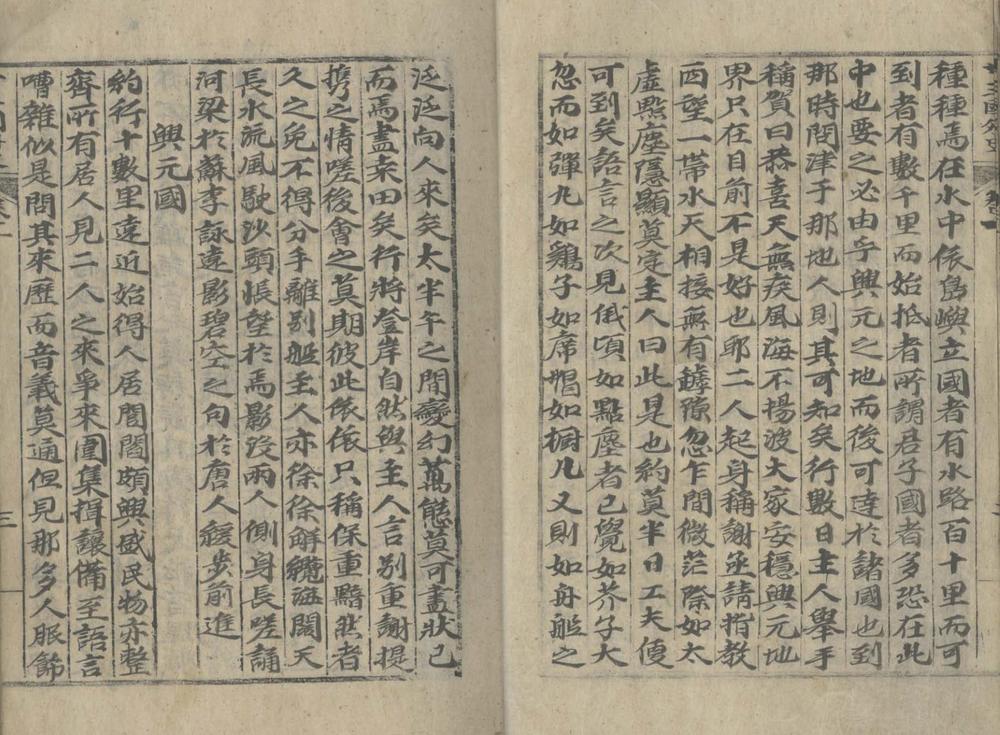 種種焉在水中依島嶼立國者有水路百十里而可
到者有數千里而始抵者所謂君子國者多恐在此
中也要之必由乎興元之地而後可達於諸國也到
那時問津于那地人則其可知矣行數日主人舉手
稱賀曰恭喜天無疾風海不揚波大家安穩興元地
界只在目前不是好也耶二人起身稱謝亟請指教
西望一帶水天相接無有罅隙忽乍間微茫際如太
虛點塵隱顯莫定主人曰此是也約莫半日工夫便
可到矣語言之次見俄頃如點塵者已覺如芥子大
忽而如彈丸如鷄子如席帽如櫥几又則如舟艦之
泛泛向人來矣太半午之間變幻萬態莫可盡狀已
而焉盡桒田矣行將登岸自然與主人言別重謝提
携之情嗟後會之莫期彼此依依只稱保重黯然者
久之免不得分手離別船主人亦徐徐解纜海闊天
長水流風駛沙頭悵望於焉影沒兩人側身長嗟誦
河梁於蘇李詠遠影碧空之句於唐人緩步前進
興元國
約行十數里遠近始得人居閭閻頗興盛民物亦整
齊所有居人見二人之來爭來圍集揖讓備至語言
嘈雜似是問其來歷而音義莫通但見那多人服飾
三